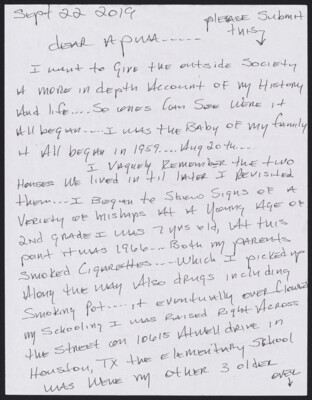 Sept 22 2019
please Submit
this
Dear APWA.....
I want to Give the outside Society
A more in depth Account of my History
And life.... So ones Can See were it
All began.... I was the Baby of my family
it All began in 1959.... Aug 20th...
I vaguely Remember the two
Houses we lived in til later I Revisited
them... I Began to Show Signs of A
Variety of mishaps At A young Age of
2nd grade I was 7 yrs old, At this
point it was 1966... Both my parents
Smoked Cigarettes.... Which I picked up
Along the way Also drugs including
Smoking Pot.... it eventually over
my Schooling I was Raised Right Across
the Street on 10615 Atwell drive in
Houston, TX the elementary School
was were my other 3 older
over